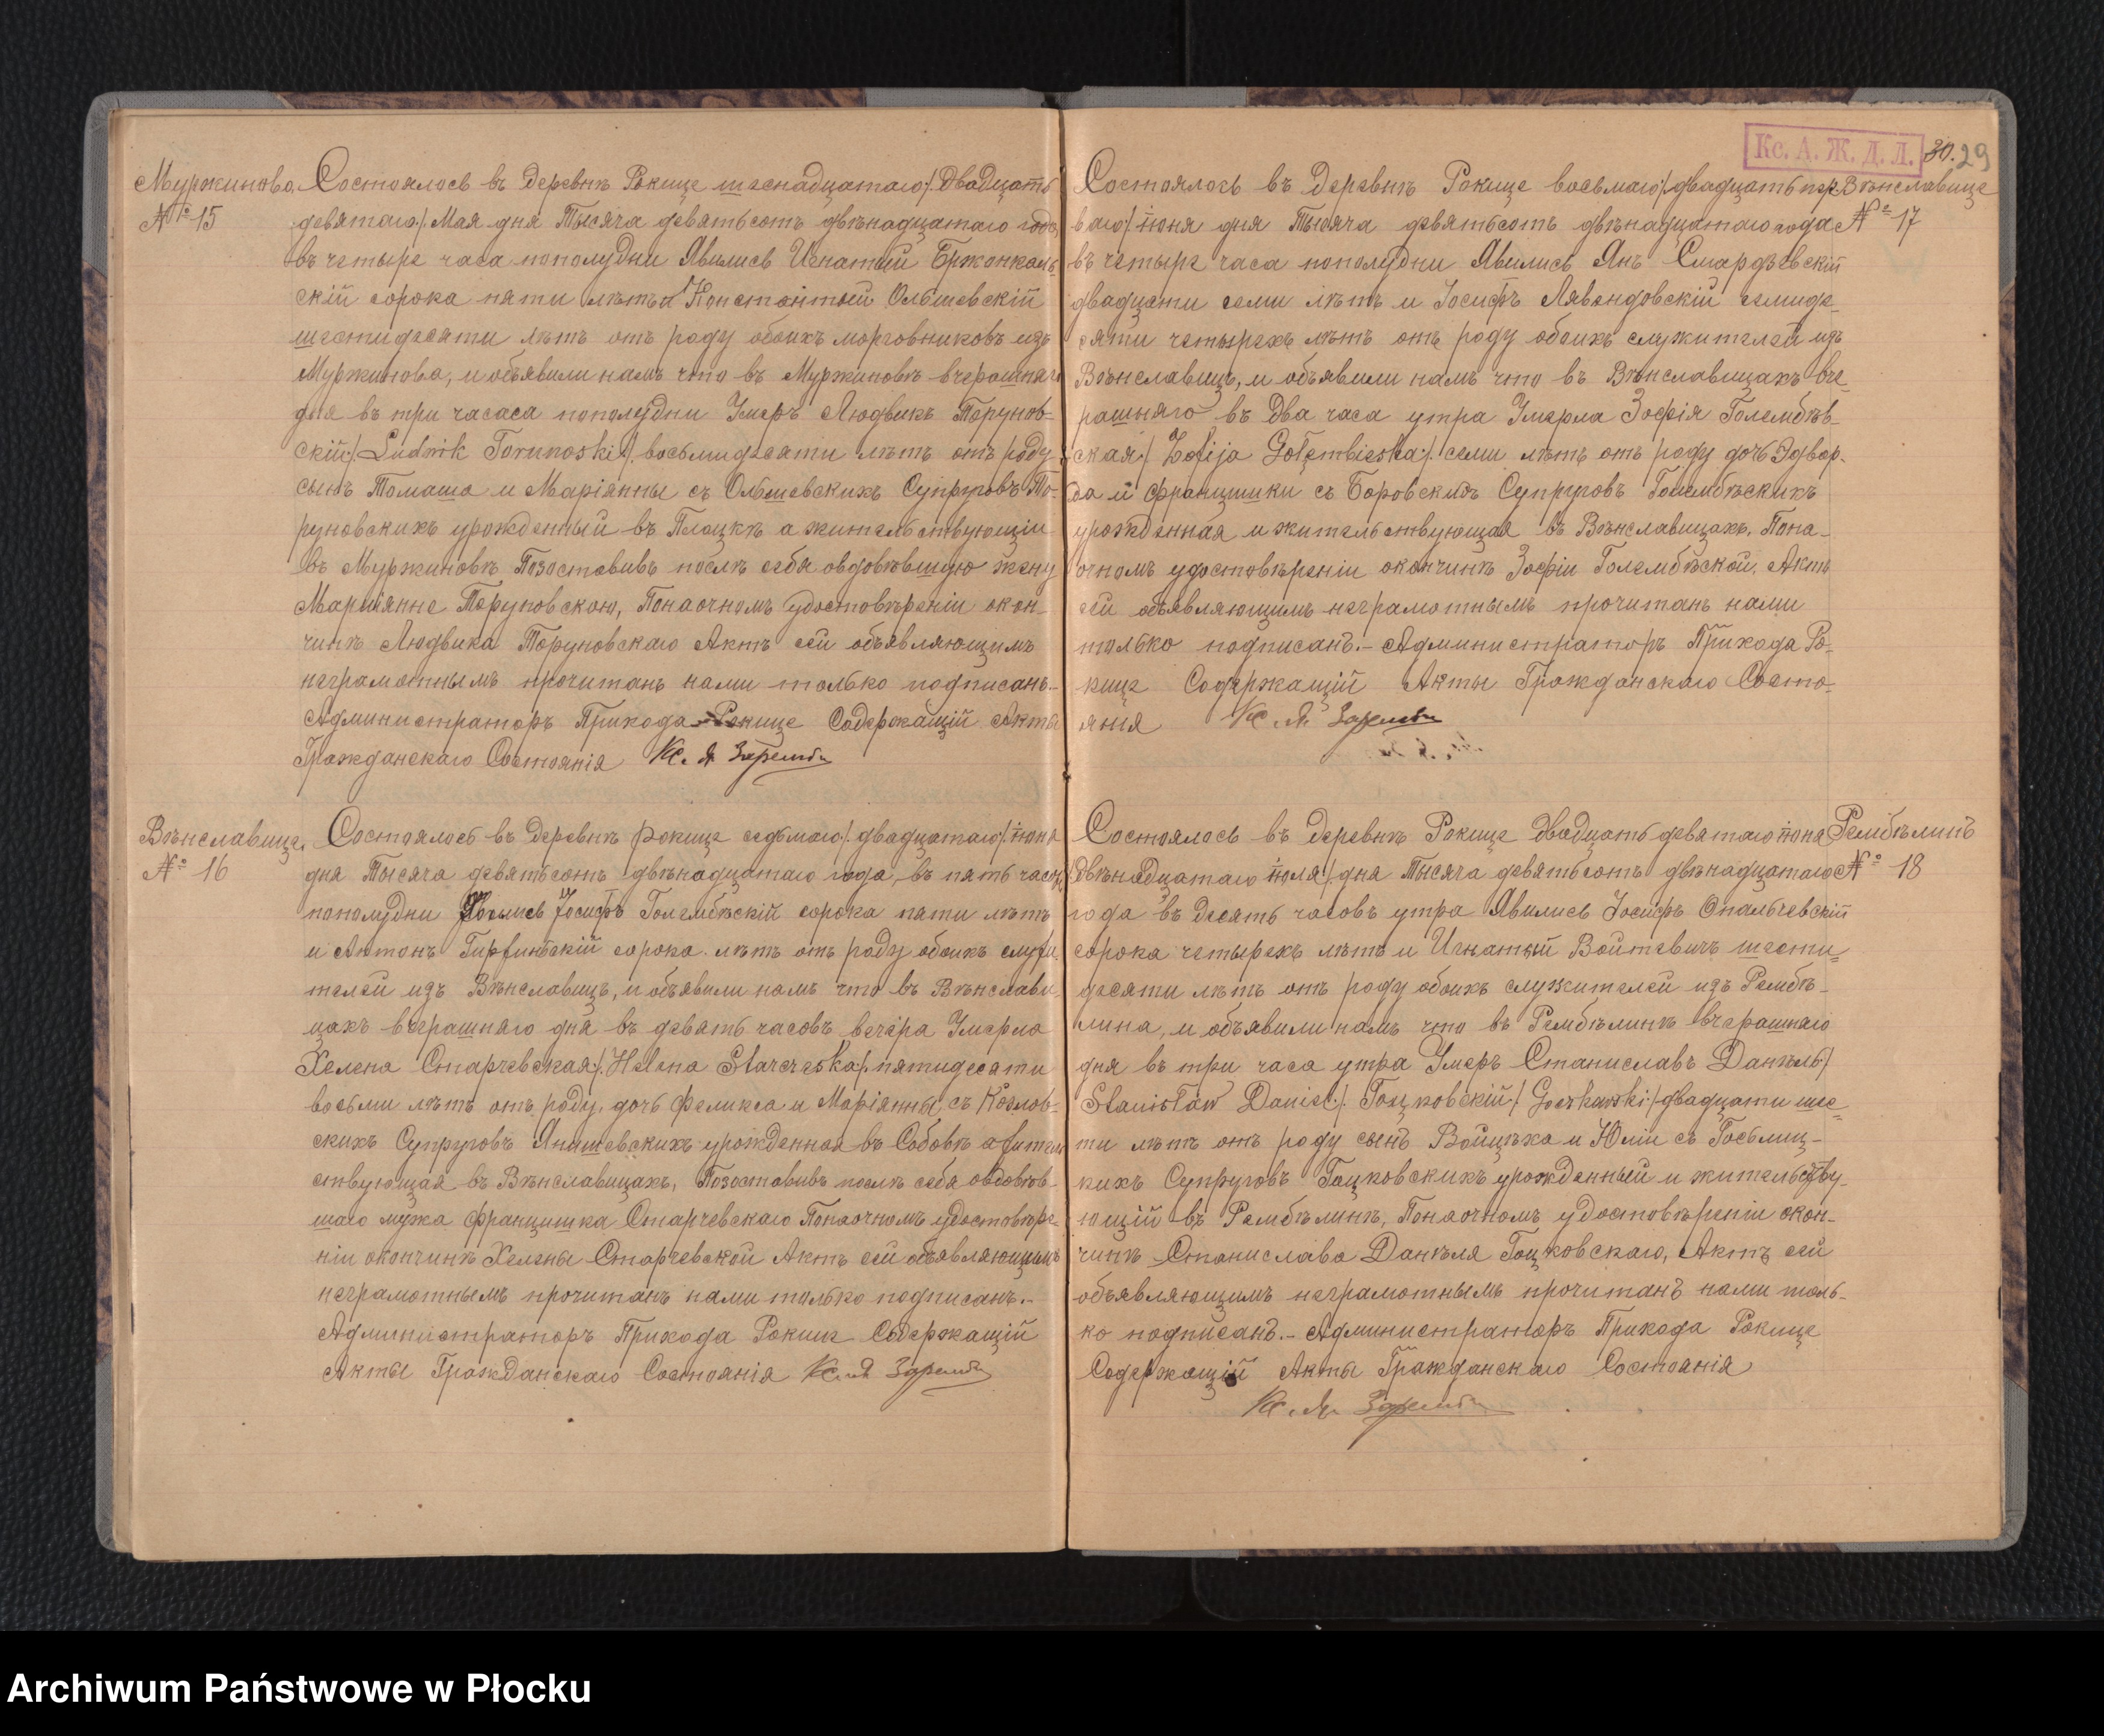 Муржиново
№ 15
Состоялось въ деревнѣ Рокице шеснадцатаго /:двадцать
девятаго:/ Мая дня Тысяча девятьсотъ двѣнадцатаго года,
въ четыре часа пополудни Явились Игнатый
скій сорока пяти лѣтъ и Константый Ольшевскій
шестидесяти лѣтъ отъ роду обоихъ морговниковъ изъ
Муржинова, и объявили намъ что въ Муржиновѣ вчерашняго
дня въ три часаса пополудни Умеръ Людвикъ Торунов-
скій /:Ludwik Torunoski:/ восьмидесяти лѣтъ отъ роду
сынъ Томаша и Маріянны съ Ольшевскихъ Супруговъ То-
руновскихъ урожденный въ Плоцкѣ а жительствующій
въ Муржиновѣ Позоставивъ послѣ себя овдовѣвшую жену
Маріянне Торуновскою, Понаочномъ удостовѣреніи окон-
чинѣ Людвика Торуновскаго Актъ сей объявляющимъ
неграмотнымъ прочитанъ нами только подписанъ.-
Администраторъ Прихода Рокице Содержащій Акты
Гражданскаго Состоянія Кс. Я Заремба
Вѣнславице
№ 16
Состоялось въ деревнѣ Рокице седьмаго /:двадцатаго:/ іюня
дня Тысяча девятьсотъ двѣнадцатаго года, въ пять часовъ
пополудни Явились Іосифъ Голембѣскій сорока пяти лѣтъ
и Антонъ сорока лѣтъ отъ роду обоихъ служи-
телей изъ Вѣнславицъ, и объявили намъ что въ Вѣнслави-
цахъ вчерашняго дня въ девять часовъ вечера Умерла
Хелена Старчевская /:Helena Starczeska:/ пятидесяти
восьми лѣтъ отъ роду, дочь Феликса и Маріянны съ Козлов-
скихъ Супруговъ Янишевскихъ урожденная въ Собовѣ а жител
ствующая въ Вѣнславицахъ, Позоставивъ послѣ себя овдовѣв-
шаго мужа Францишка Старчевскаго Понаочномъ удостовѣре-
ніи окончинѣ Хелены Старчевской Актъ сей объявляющимъ
неграмотнымъ прочитанъ нами только подписанъ.-
Администраторъ Прихода Рокице Содержащій
Акты Гражданскаго Состоянія Кс. Я Заремба
Кс. А. Ж. Д. Л.
30. 29
Вѣнславице
№ 17
Состоялось въ деревнѣ Рокице восьмаго /:двадцать пер-
ваго:/ іюня дня Тысяча девятьсотъ двѣнадцатаго года
въ четыре часа пополудни Явились Янъ Смардзевскій
двадцати семи лѣтъ и Іосифъ Лявендовскій семиде-
сяти четырехъ лѣтъ отъ роду обоихъ служителей изъ
Вѣнславицъ, и объявили намъ что въ Вѣнславицахъ вче-
рашняго въ два часа утра Умерла Зофія Голембѣв-
ская /:Zofija Gołembieska:/ семи лѣтъ отъ роду дочь Эдвар-
да и Францишки съ Боровскихъ Супруговъ Голембѣскихъ
урожденная и жительствующая въ Вѣнславицахъ, Пона-
очномъ удостовѣреніи окончинѣ Зофіи Голембѣской, Актъ
сей объявляющимъ неграмотнымъ прочитанъ нами
только подписанъ.- Администраторъ Прихода Ро-
кице Содержащій Акты Гражданскаго Состо-
янія Кс. Я Заремба
Рембѣлинъ
№ 18
Состоялось въ деревнѣ Рокице двадцать девятаго іюня
/:двѣнадцатаго іюля:/ дня Тысяча девятьсотъ двѣнадцатаго
года въ десять часовъ утра Явились Іосифъ Опальчевскій
сорока четырехъ лѣтъ и Игнатый Войтевичъ шести-
десяти лѣтъ отъ роду обоихъ служителей изъ Рембѣ-
лина, и объявили намъ что въ Рембѣлинѣ вчерашняго
дня въ три часа утра Умеръ Станиславъ Данѣль /:
Stanisław Daniel:/ Гоцковскій /:Gockowski:/ двадцати шес-
ти лѣтъ отъ роду сынъ Войцѣха и Юліи съ Госьлиц-
кихъ Супруговъ Гоцковскихъ урожденный и жительству-
ющій въ Рембѣлинѣ, Понаочномъ удостовѣреніи окон-
чинѣ Станислава Данѣля Гоцковскаго, Актъ сей
объявляющимъ неграмотнымъ прочитанъ нами толь-
ко подписанъ.- Администраторъ Прихода Рокице
Содержащій Акты Гражданскаго Состоянія
Кс. Я. Заремба
Archiwum Państwowe w Płocku